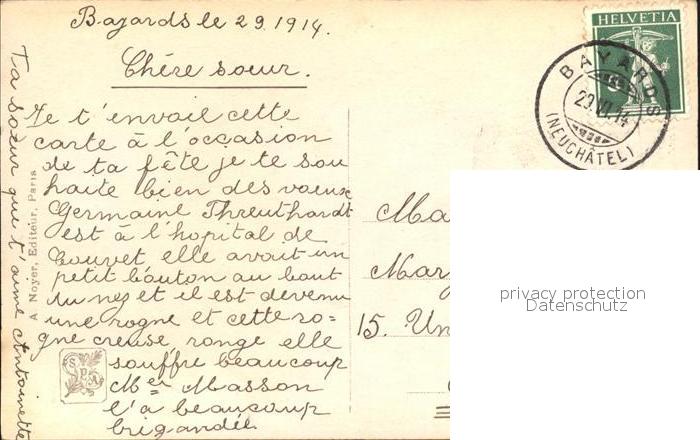 Bayards le 29. 1914.
Chère soeur.
Je t'envoil cette
carte à l'occasion
de ta fête je te sou
haite bien des voeux
Germaine Threuthardt
est à l'hopital de
Couvet elle avait un
petit bouton au bout
du nez et il est devenu
une rogne et cette ro=
gne creuse ronge elle
souffre beaucoup
Mer Masson
l'a beaucoup
brigandée
Ta soeur que t'aime Antoinette
A Noyer, Editeur, Paris
SPA
HELVETIA
BAYARDS
29.VI.14
(NEUCHÂTEL)
Ma
Mar
15. Un
privacy protection
Datenschutz